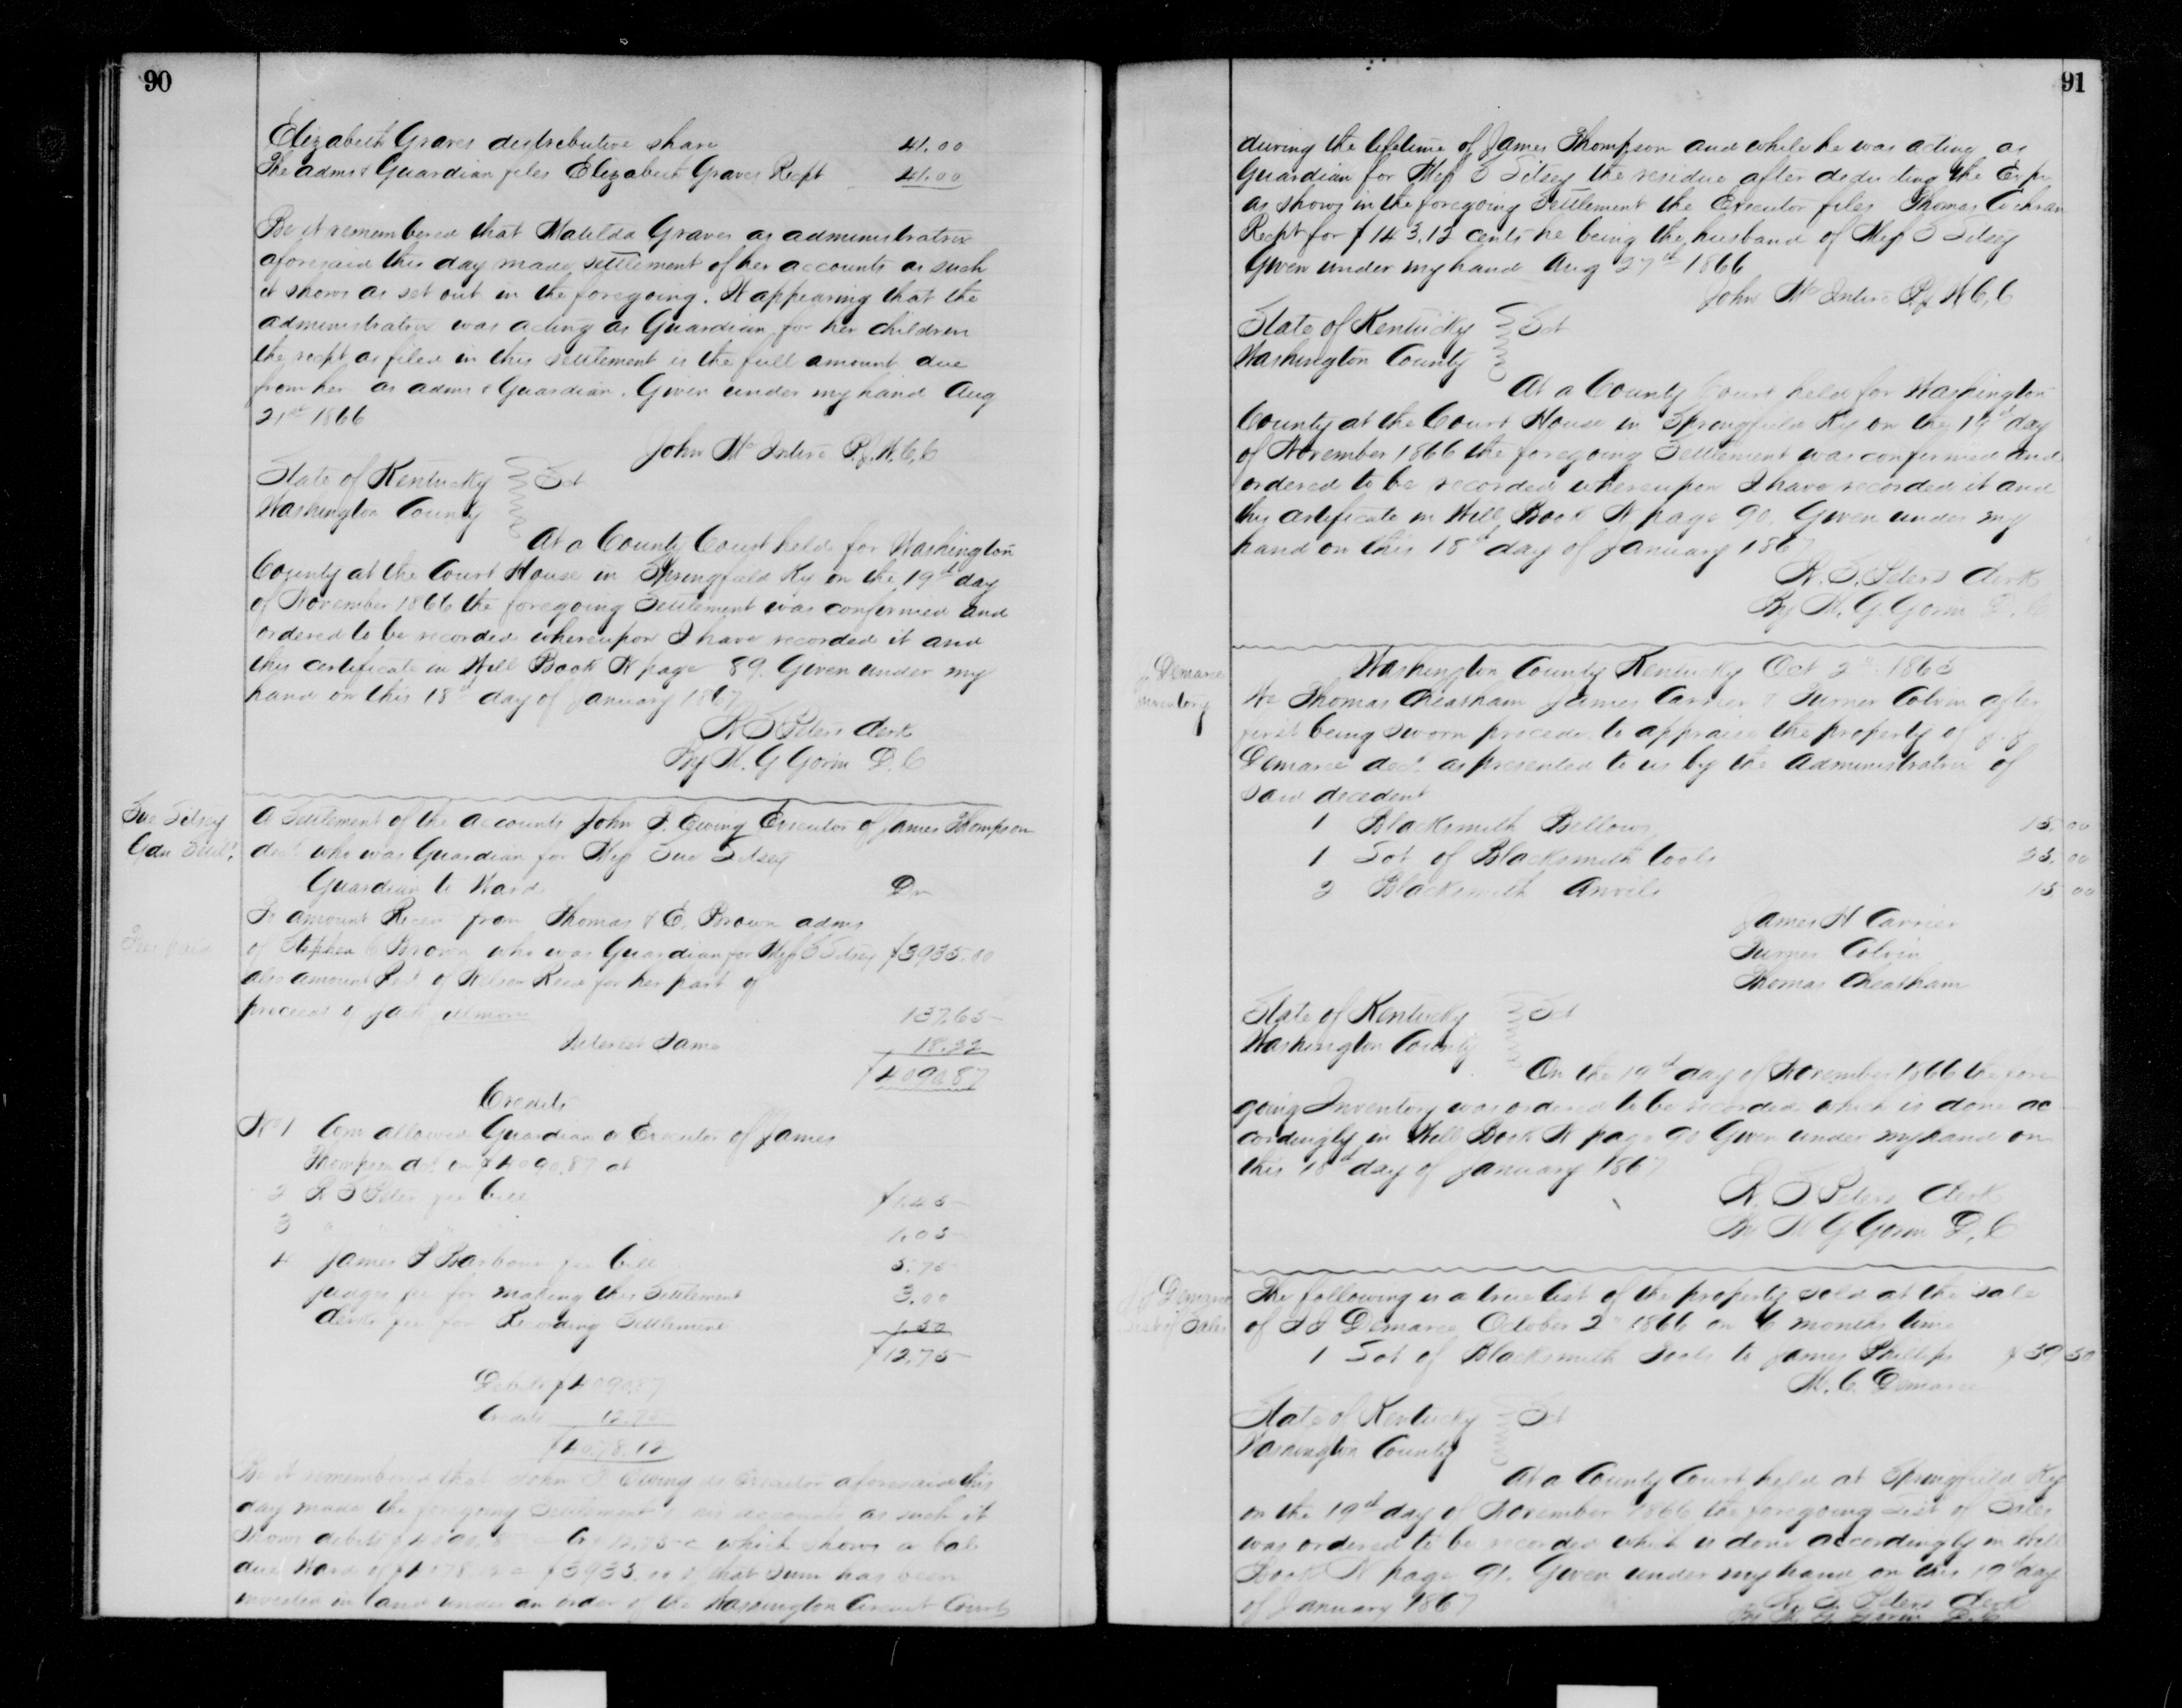 90
Elizabeth Graves distributive share 41.00
The adms & Guardian files Elizabeth Graves Recpt 41.00
Be it remembered that Matilda Graves as administratrix
aforesaid this day made settlement of her accounts as such
it shows as set out in the foregoing. It appearing that the
administratrix was acting as Guardian for her children
the recpt as filed in this settlement is the full amount due
from her as adms & Guardian. Given under my hand Aug
21st 1866
John McIntire P.J.W.C.C
State of Kentucky Sct
Washington County
At a County Court held for Washington
County at the Court House in Springfield Ky on the 19th day
of November 1866 the foregoing Settlement was confirmed and
ordered to be recorded whereupon I have recorded it and
this certificate in Will Book N page 89. Given under my
hand on this 18th day of January 1867
W S Peters Clerk
By W. G Gorin D.C
Sue Silsey
Gdn Settt.
A Settlement of the accounts John J. Ewing Executor of James Thompson
decd who was Guardian for Miss Sue Silsey
Guardian to Ward Dr
To amount Recev from Thomas & E. Brown adms
Fee paid
of Stephen C Brown who was Guardian for Miss S Silsey $3935.00
also amount Recd of Nelson Reed for her part of
proceeds of Jack 137.65
Interest Same 18.22
$4090.87
Credits
No 1 Com allowed Guardian or Executor of James
Thompson decd on $4090.87 at
2 W S Peters fee bill $1.45
3 " " " 1.05
4 James P Barbour fee bill 5.75
judges fee for making this Settlement 3.00
Clerks fee for Recording Settlement 1.50
$12.75
Debits $4090.87
Credits 12.75
$4078.12
Be it remembered that John J Ewing as Executor aforesaid this
day made the foregoing Settlement of his accounts as such it
shows debits $4090.87 Cr 12.75 c which shows a bal
due Ward of $4078.12 c $3935.00 of that Sum has been
invested in land under an order of the Washington Circuit Court
91
during the lifetime of James Thompson and while he was acting as
Guardian for Miss S Silsey the residue after deducting the Exps
as shows in the foregoing Settlement the Executor files Thomas Cochran
Recpt for $143.12 cents he being the husband of Miss S Silsey
Given under my hand Aug 27th 1866
John McIntire P.J W C.C
State of Kentucky Sct
Washington County
At a County Court held for Washington
County at the Court House in Springfield Ky on the 19th day
of November 1866 the foregoing Settlement was confirmed and
ordered to be recorded whereupon I have recorded it and
this certificate in Will Book N page 90. Given under my
hand on this 18th day of January 1867
W. S. Peters Clerk
By W. G. Gorin D. C
Demaree
Inventory
Washington County Kentucky Oct 2d 1866
We Thomas Cheatham James Carrier & Turner Colvin after
first being Sworn procede to appraise the property of J. J.
Demaree decd. as presented to us by the Administratrix of
said decedent
1 Blacksmith Bellows 15.00
1 Sot of Blacksmith tools 25.00
2 Blacksmith Anvils 15.00
James H Carrier
Turner Colvin
Thomas Cheatham
State of Kentucky Sct
Washington County
On the 19th day of November 1866 the fore
going Inventory was ordered to be recorded which is done ac
cordingly in Will Book N page 90 Given under my hand on
this 18th day of January 1867
W. S Peters Clerk
By W G Gorin D. C
Demaree
List of Sales
The following is a true list of the property sold at the sale
of J J Demaree October 2d 1866 on 6 months time
1 Sot of Blacksmith Tools to James Phillips $39 50
M. C. Demaree
State of Kentucky Sct
Washington County
At a County Court held at Springfield Ky
on the 19th day of November 1866 the foregoing List of Sales
was ordered to be recorded which is done accordingly in Will
Book N page 91. Given under my hand on this 19th day
of January 1867
W. S. Peters Clerk
By W. G. Gorin D. C